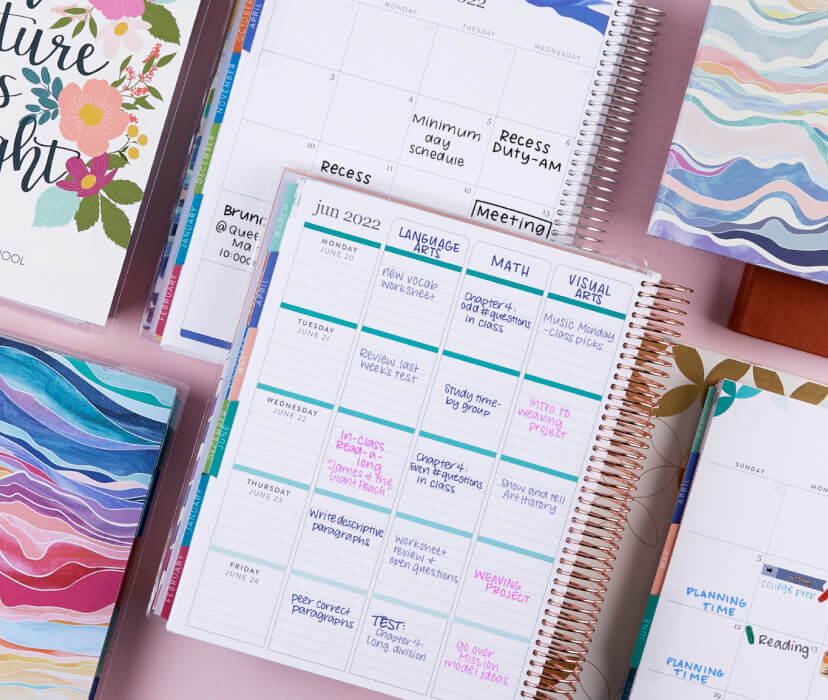 ture
OOL
OCTOBER
NOVEMBER
DECEMBER
JANUARY
FEBRUARY
APRIL
2022
MONDAY
TUESDAY
WEDNESDAY
4
5
6
Minimum
day
schedule
Recess
Duty-AM
10
11
12
13
Recess
Meeting
Brun
@Que
Ma
10:00
MARCH
APRIL
JUNE
JANUARY
FEBRUARY
jun 2022
LANGUAGE
ARTS
MATH
VISUAL
ARTS
MONDAY
JUNE 20
new vocab
worksheet
Chapter 4:
odd # questions
in class
Music Monday
-class picks
TUESDAY
JUNE 21
Review last
week's test
Study time-
by group
Intro to
weaving
project
WEDNESDAY
JUNE 22
In-class
Read-a-
long
"James & The
Giant Peach"
Chapter 4:
Even # questions
in class
Show and tell
Art History
THURSDAY
JUNE 23
Write descriptive
paragraphs
Worksheet
review &
open questions
WEAVING
PROJECT
FRIDAY
JUNE 24
peer correct
paragraphs
TEST:
Chapter 4:
Long division
go over
Mission
model ideas
APRIL
MAY
JUNE
SUNDAY
MON
5
college prep
PLANNING
TIME
12
Reading
PLANNING
TIME
19